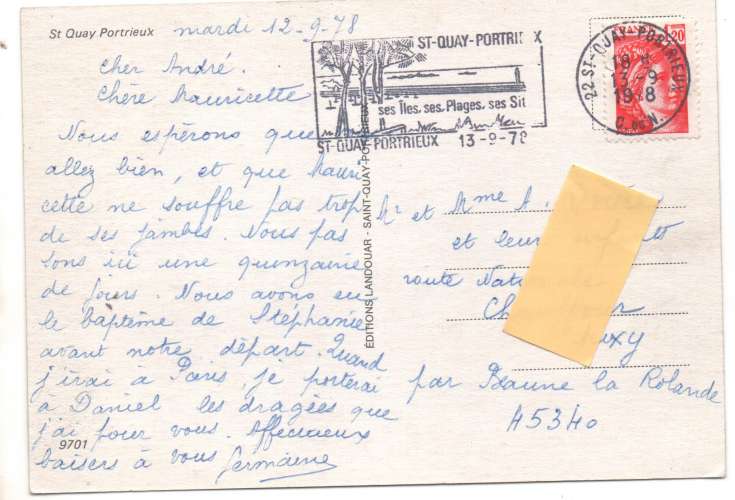 St Quay Portrieux
mardi 12-9-78
Cher André.
Chère Mauricette
Nous espérons que
allez bien, et que Mauri
cette ne souffre pas trop
de ses jambes. Nous pas
sons ici une quinzaine
de jours. Nous avons eu
le baptême de Stéphanie
avant notre départ. Quand
j'irai à Paris, je porterai
à Daniel les dragées que
j'ai pour vous. Affectueux
baisers à vous Germaine
9701
ÉDITIONS LANDOUAR - SAINT-QUAY-PO
ST-QUAY-PORTRIEUX
ses Îles. ses Plages. ses Sit
ST-QUAY-PORTRIEUX 13-9-78
22 ST-QUAY-PORTRIEUX
18 H
13-9
19 8
C. DU N.
1,20
Mr et Mme A.
et leurs
route Nationale
par Beaune la Rolande
45340